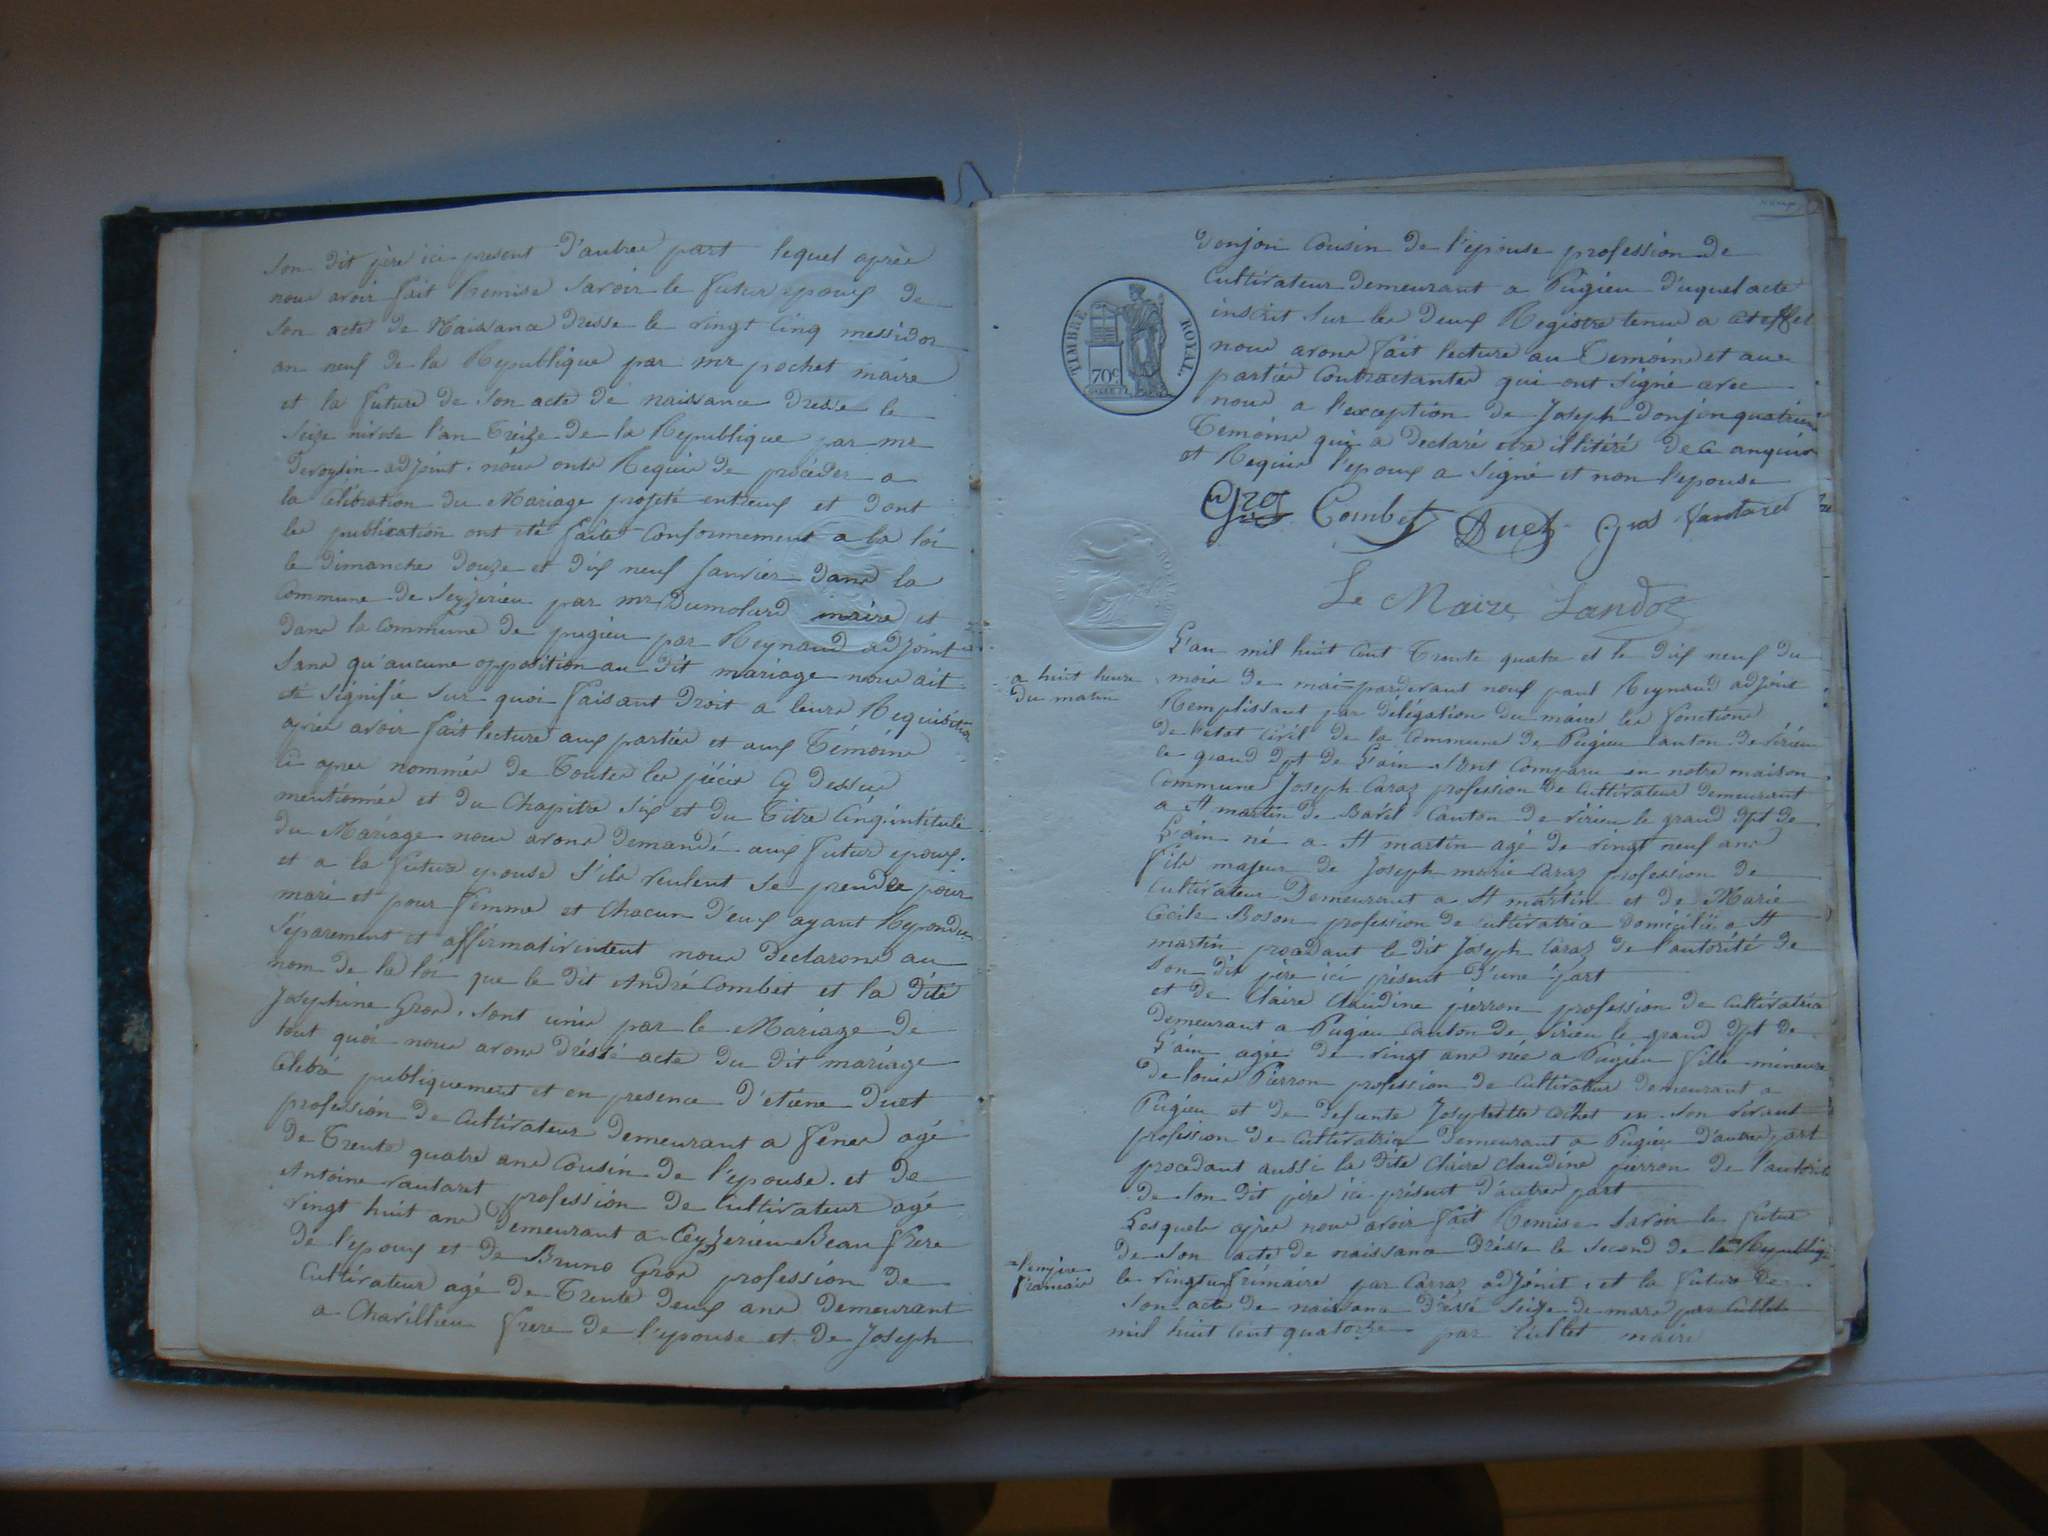 son dit père ici present d'autre part lequel après
nous avoir fait Remise Savoir le futur epoux de
son acte de Naissance Dresse le vingt cinq messidor
an neuf de la Republique par mr pochet maire
et la future de son acte de naissance Dresse le
seize nivose l'an Treize de la Republique par mr
adjoint. nous onts Requis de procéder a
la Célébration du Mariage projeté entreux et dont
les publication ont été faites Conformement a la loi
le Dimanche Douze et Dix neuf Janvier dans la
Commune de Seyzerieu par mr Dumolard maire et
Dans la commune de pugieu par Reynaud adjoint
Sans qu'aucune opposition au dit mariage nous ait
été signifié sur quoi faisant Droit a leurs Requisition
après avoir fait lecture aux parties et aux Témoins
ci apres nommés de Toutes les pièces Cy dessus
mentionnées et du Chapitre Six et du Titre Cinq intitulé
du Mariage nous avons demandé aux futur epoux.
et a la future epouse S'ils veulent se prendre pour
mari et pour femme et chacun D'eux ayant Repondu
Séparement et affirmativement nous Declarons au
nom de la loi que le dit André Combet et la dite
Josephine Gros. sont unis par le Mariage de
tout quoi nous avons dréssé acte du dit mariage
Célebré publiquement et en presence D'etiene Duet
profession de Cultivateur demeurant a Fenes agé
de Trente quatre ans Cousin de l'epouse. et de
Antoine vautaret profession de Cultivateur agé
vingt huit ans Demeurant a Ceyzerieu Beau frere
de l'epoux et de Bruno Gros profession de
Cultivateur agé de Trente Deux ans demeurant
a Chavillieu frere de l'epouse et de Joseph
donjon Cousin de l'épouse profession de
Cultivateur Demeurant a Pugieu Duquel acte
inscrit sur les Deux Registre tenus a cet effet
nous avons fait lecture au Temoins et aux
parties Contractantes qui ont signé avec
nous a l'exception de Joseph donjon quatriem
Temoins qui a Declaré etre illitéré de ce anquis
et Requis l'epoux a signé et non l'epouse
TIMBRE ROYAL.
70c
Gros Combet Duet Gros Vautaret
Le Maire Landoz
L'an mil huit cent Trente quatre et le dix neuf du
a huit heure
du matin
mois de mai pardevant nous paul Reynaud adjoint
Remplissant par délégation du maire les fonctions
de l'etat civil de la Commune de Pugieu Canton de virieu
le grand dpt de L'ain sont Comparu en notre maison
Commune Joseph Caraz profession de Cultivateur demeurant
a St martin de Bavel Canton de virieu le grand dpt de
L'ain né a St martin agé de vingt neuf ans
fils majeur de Joseph marie Caraz profession de
Cultivateur Demeurant a St martin et de Marie
Cecile Boson profession de cultivatrice Domiciliée a St
martin procedant le dit Joseph Caraz de l'autorité de
son dit père ici présent D'une part
et de Claire Claudine pierron profession de Cultivatrice
Demeurant a Pugieu Canton de virieu le grand dpt de
L'ain agée de vingt ans née a Pugieu fille mineure
de louis Pierron profession de cultivateur demeurant a
Pugieu et de défunte Josephette Cochet en son vivant
profession de cultivatrice demeurant a Pugieu D'autre part
procedant aussi la dite Claire Claudine pierron de l'autorité
de son dit père ici présent d'autre part
Lesquels après nous avoir fait Remise Savoir le futur
de son acte de naissance Drésse le second de la Republiq
= l'empire
français
le vingt un frimaire par Carraz adjoint. et la future de
son acte de naissance Dréssé Seize de mars par Cullet
mil huit cent quatorze par Cullet maire